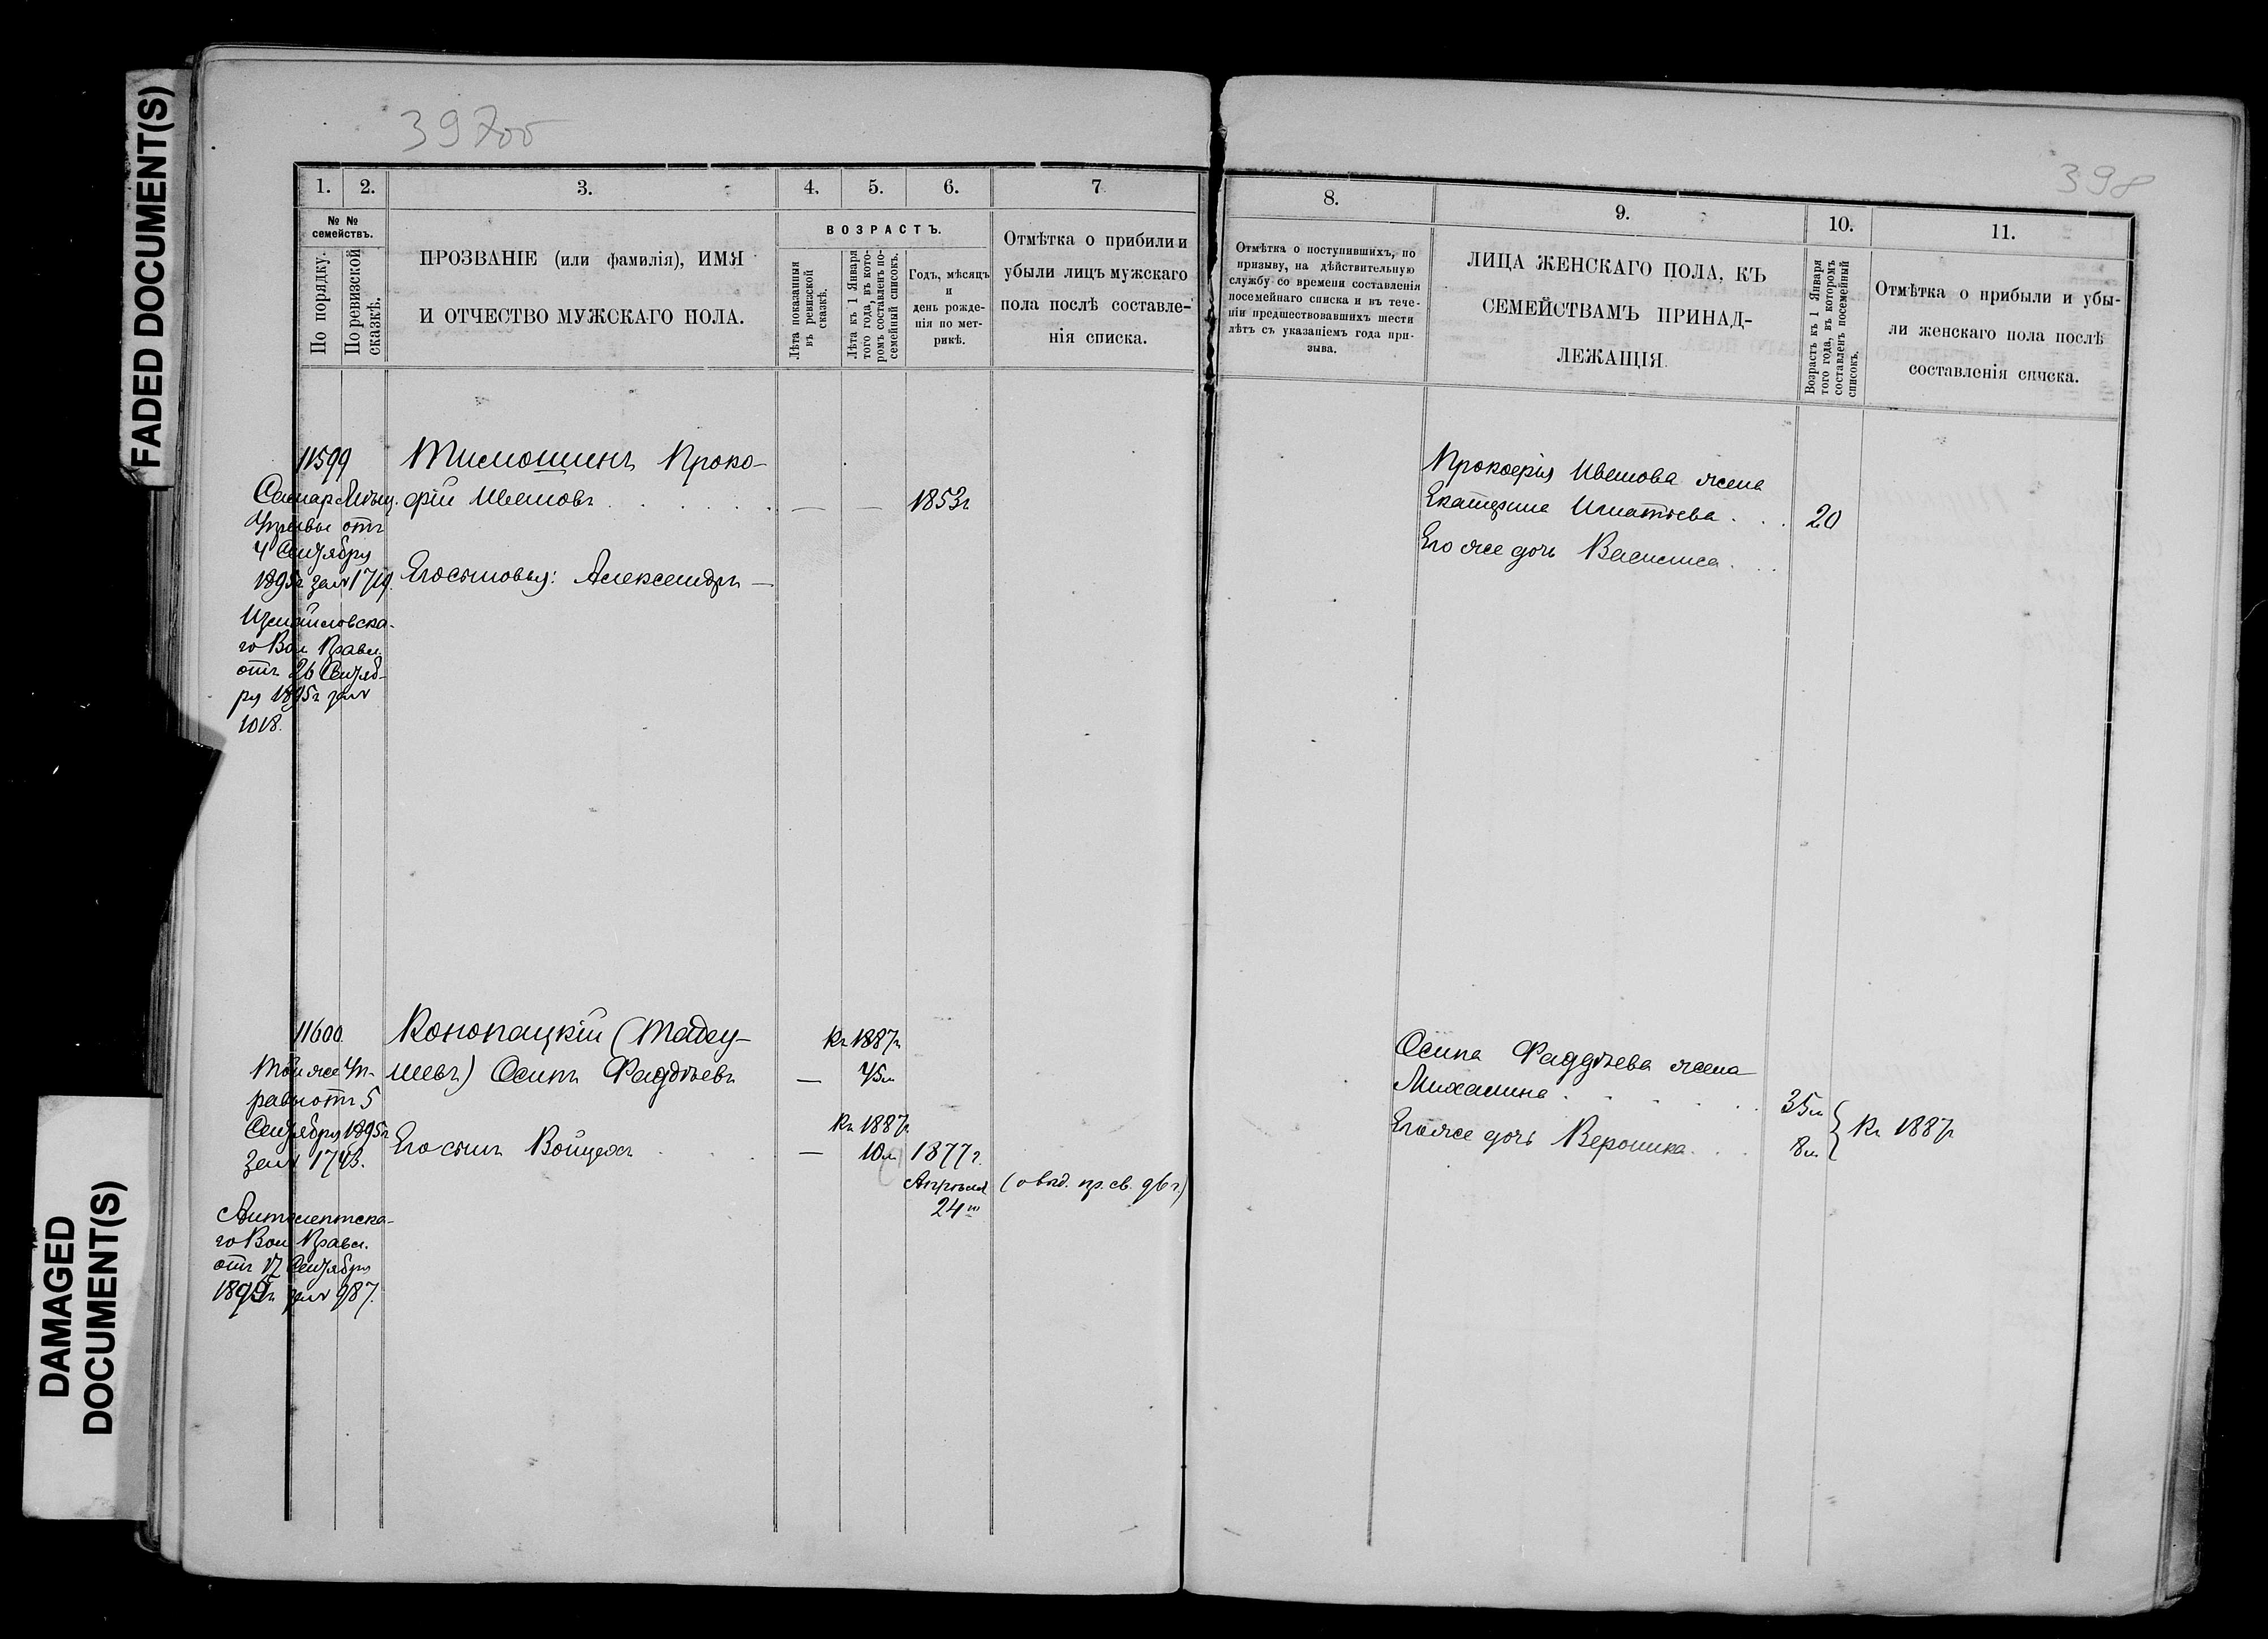 FADED DOCUMENT(S)
DAMAGED
DOCUMENT(S)
397об
1. 2. 3. 4. 5. 6. 7
№ №
семействъ.
По порядку.
По ревизской
сказкѣ.
ПРОЗВАНІЕ (или фамилія), ИМЯ
И ОТЧЕСТВО МУЖСКАГО ПОЛА.
ВОЗРАСТЪ.
Лѣта показанныя
въ ревизской
сказкѣ.
Лѣта къ 1 Января
того года, въ кото-
ромъ составленъ по-
семейный списокъ.
Годъ, мѣсяцъ
и
день рожде-
нія по мет-
рикѣ.
Отмѣтка о прибыли и
убыли лицъ мужскаго
пола послѣ составле-
нія списка.
11599
Самар. Мѣщ.
Управы отъ
4 Сентября
1895г за № 1719.
Измайловска-
го Вол Правл.
отъ 26 Сентяб-
ря 1895г за №
1018.
Тимошинъ Проко-
фій Ивановъ . . . . . — — 1853г
Его сыновья: Александръ —
11600.
Той же Уп-
равы отъ 5
Сентября 1895г
за № 1743.
го Вол Правл.
отъ 17 Сентября
1895г за № 987.
Конопацкій (Тадеу- Къ 1887г
шевъ) Осипъ Фаддѣевъ — 45л
Къ 1887г
Его сынъ Войцехъ . . . — 10л 1877г.
Апрѣля (о выд. пр. св. 96г.)
24го
398
8. 9. 10. 11.
Отмѣтка о поступившихъ, по
призыву, на дѣйствительную
службу со времени составленія
посемейнаго списка и въ тече-
ніи предшествовавшихъ шести
лѣтъ съ указаніемъ года при-
зыва.
ЛИЦА ЖЕНСКАГО ПОЛА, КЪ
СЕМЕЙСТВАМЪ ПРИНАД-
ЛЕЖАЩІЯ.
Возрастъ къ 1 Января
того года, въ которомъ
составленъ посемейный
списокъ.
Отмѣтка о прибыли и убы-
ли женскаго пола послѣ
составленія списка.
Прокофія Иванова жена
Екатерина Игнатьева . . . 20
Его же дочь Василиса . . .
Осипа Фаддѣева жена
Михалина . . . . . 35л
Его же дочь Вероника . . . 8л } Къ 1887г